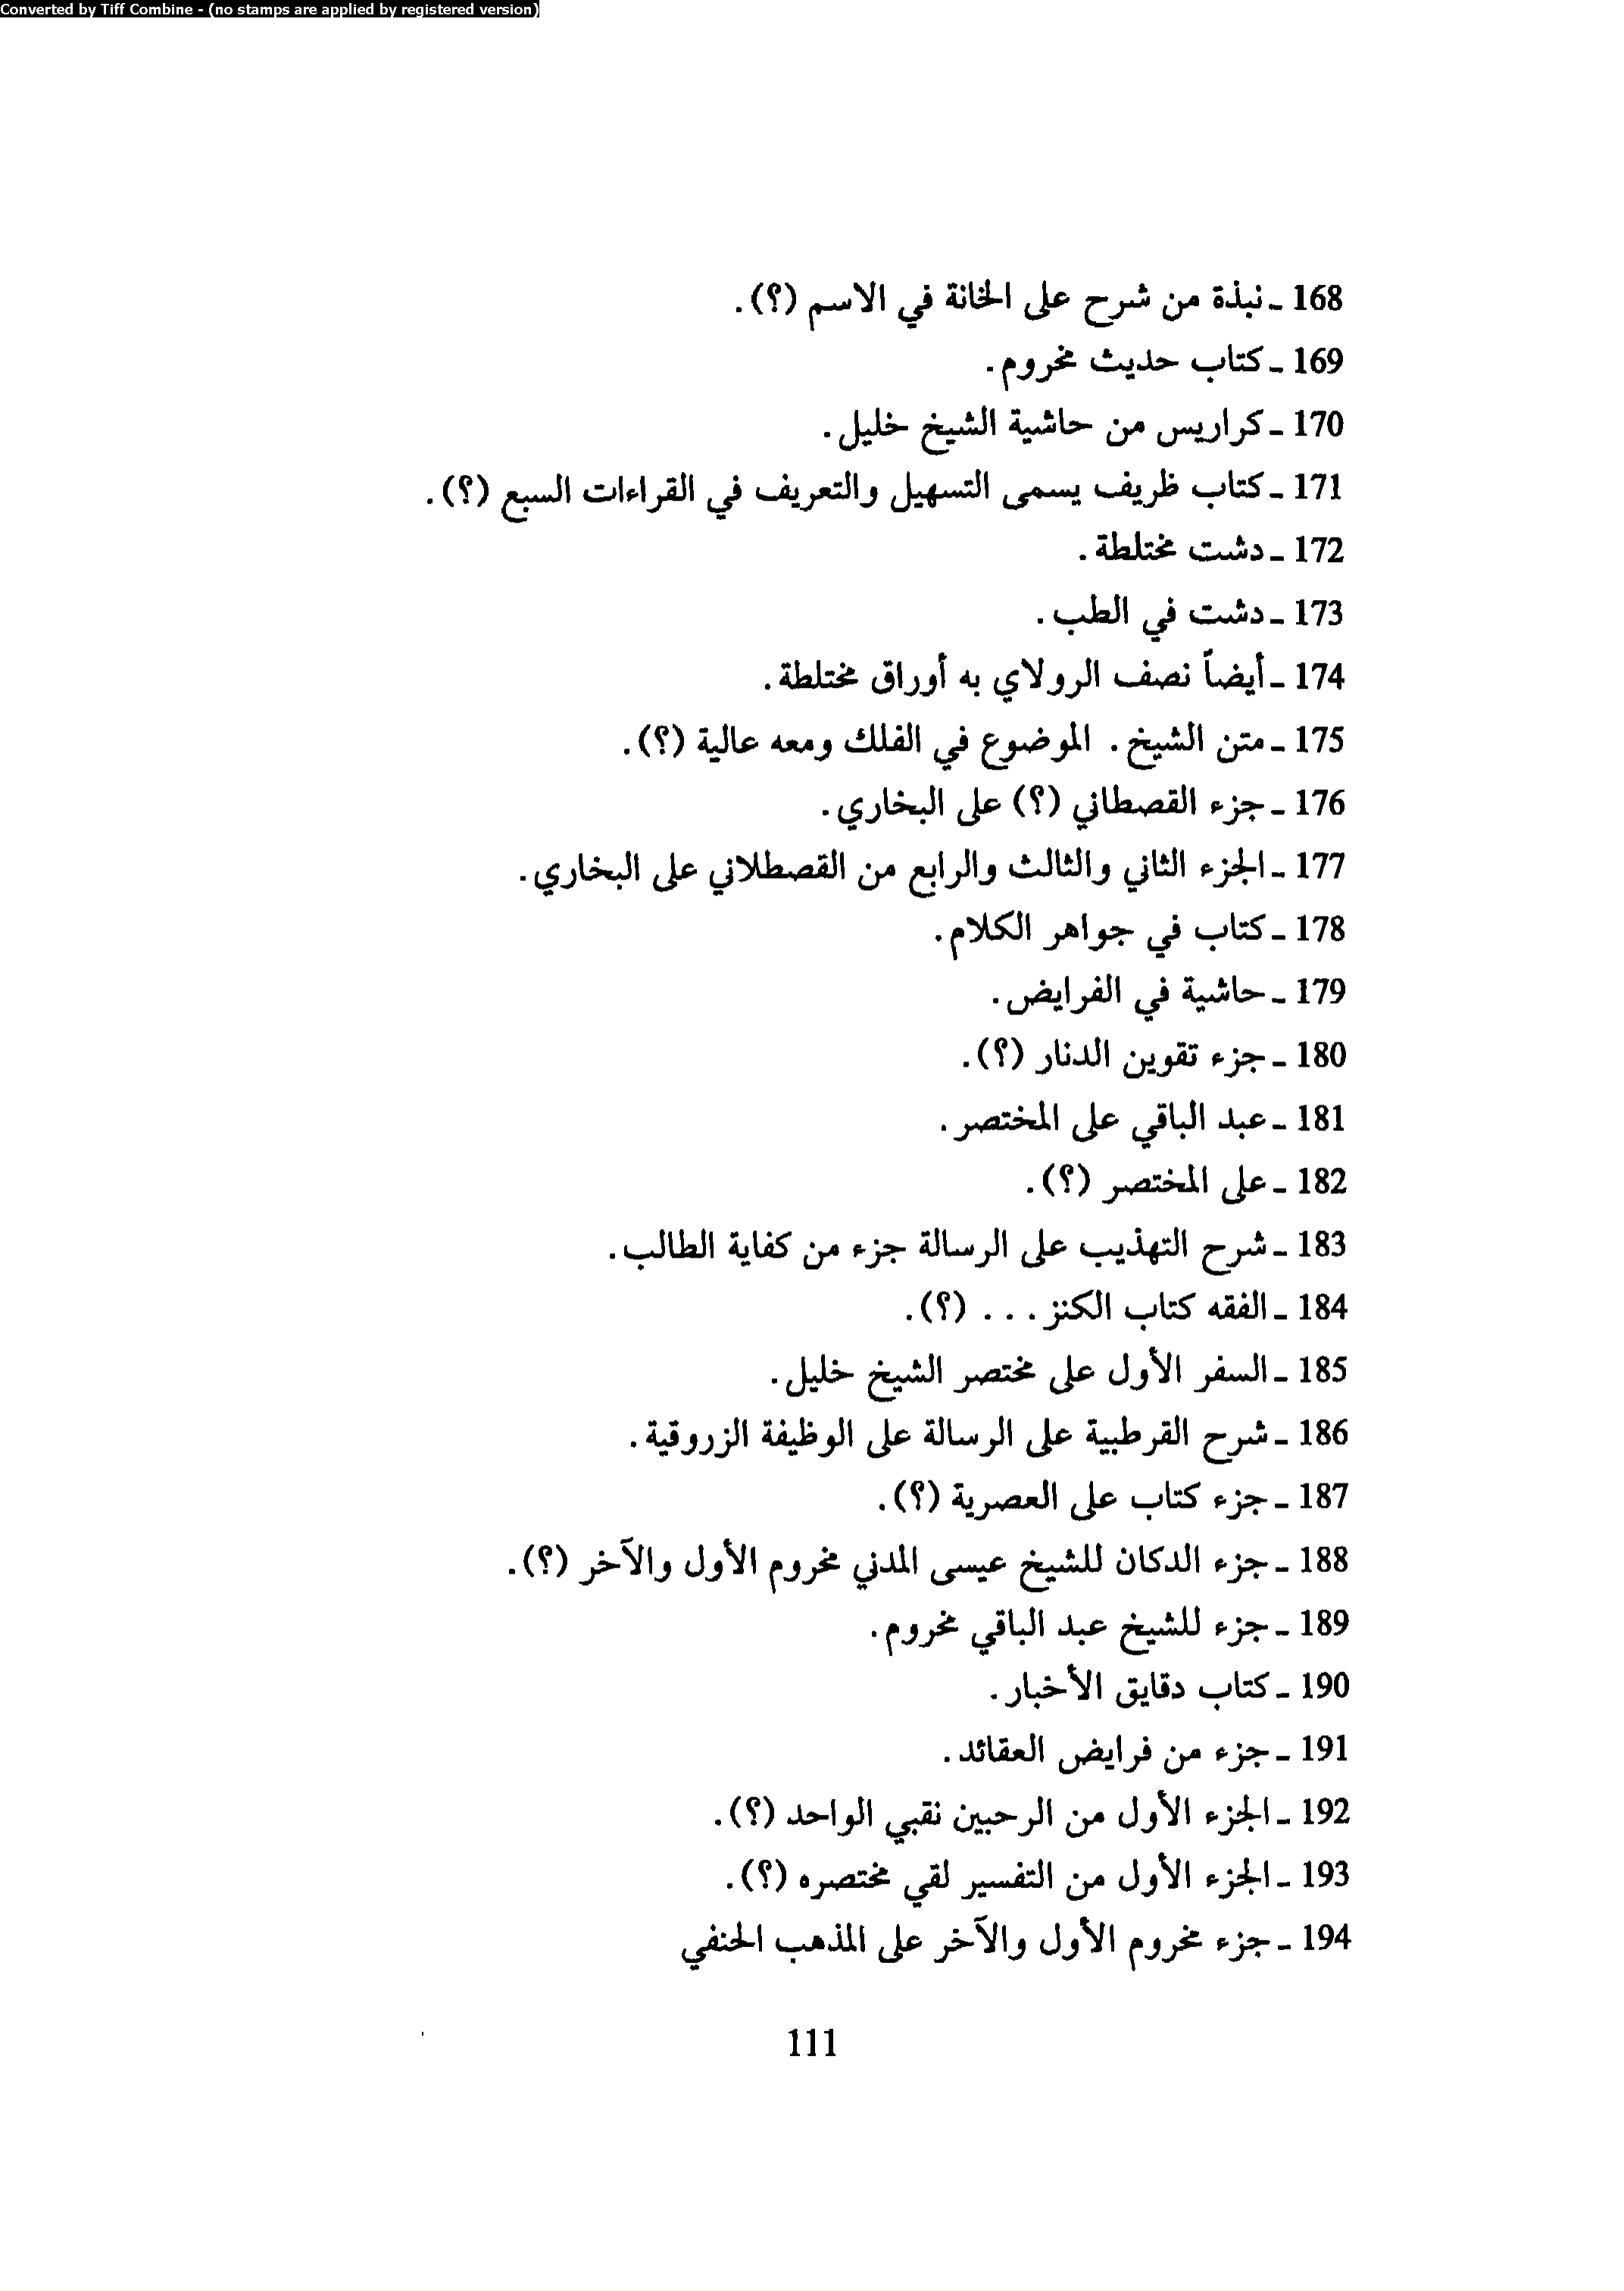 Converted by Tiff Combine - (no stamps are applied by registered version)
168 ـ نبذة من شرح على الخانة في الاسم (؟).
169 ـ كتاب حديث مخروم.
170 ـ كراريس من حاشية الشيخ خليل.
171 ـ كتاب ظريف يسمى التسهيل والتعريف في القراءات السبع (؟).
172 ـ دشت مختلطة.
173 ـ دشت في الطب.
174 ـ أيضاً نصف الرولاي به أوراق مختلطة.
175 ـ متن الشيخ. الموضوع في الفلك ومعه عالية (؟).
176 ـ جزء القصطاني (؟) على البخاري.
177 ـ الجزء الثاني والثالث والرابع من القصطلاني على البخاري.
178 ـ كتاب في جواهر الكلام.
179 ـ حاشية في الفرايض.
180 ـ جزء تقوين الدنار (؟).
181 ـ عبد الباقي على المختصر.
182 ـ على المختصر (؟).
183 ـ شرح التهذيب على الرسالة جزء من كفاية الطالب.
184 ـ الفقه كتاب الكنز . . . (؟).
185 ـ السفر الأول على مختصر الشيخ خليل.
186 ـ شرح القرطبية على الرسالة على الوظيفة الزروقية.
187 ـ جزء كتاب على العصرية (؟).
188 ـ جزء الدكان للشيخ عيسى المدني مخروم الأول والآخر (؟).
189 ـ جزء للشيخ عبد الباقي مخروم.
190 ـ كتاب دقايق الأخبار.
191 ـ جزء من فرايض العقائد.
192 ـ الجزء الأول من الرحبين نقبي الواحد (؟).
193 ـ الجزء الأول من التفسير لقي مختصره (؟).
194 ـ جزء مخروم الأول والآخر على المذهب الحنفي
111